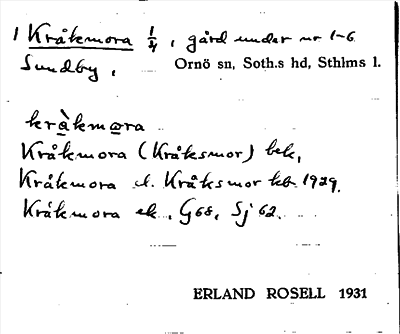 1 Kråkmora 1/4, gård under nr 1-6
Sundby.
Ornö sn, Soth.s hd, Sthlms l.
kråkmora
Kråkmora (Kråksmor) bek,
Kråkmora el. Kråksmor kb 1929.
Kråkmora ek. G68, Sj 62.
ERLAND ROSELL 1931